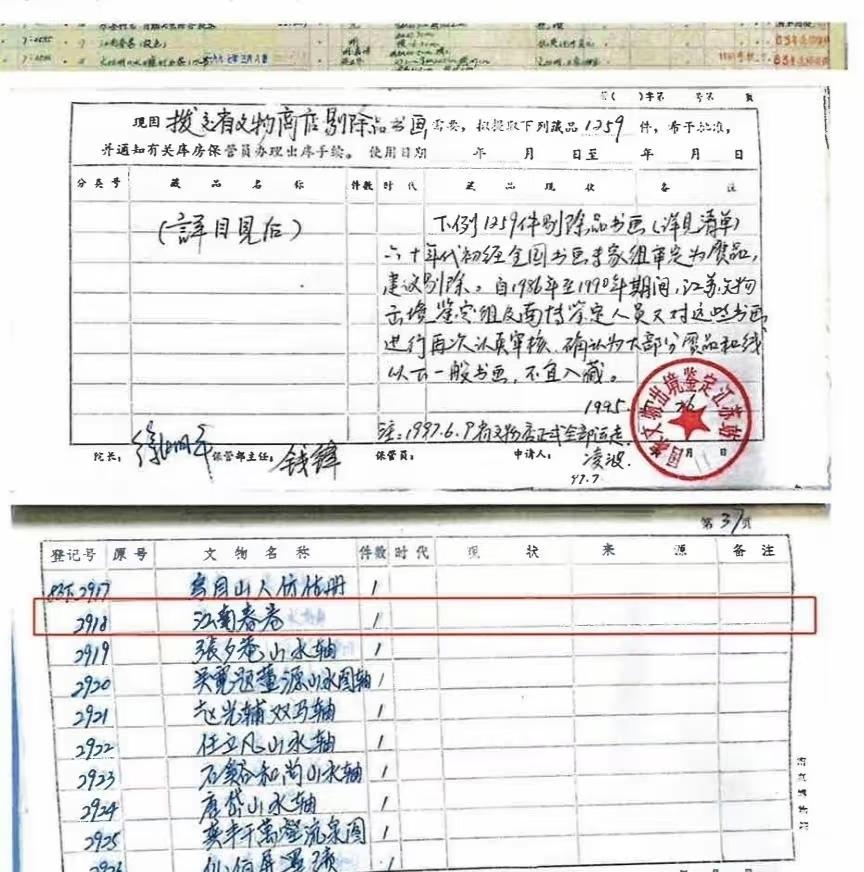 7:2595
江南春卷（设色）
字（ ）字第 号第 页
现因 拨交省文物商店剔除品书画 需要，拟提取下列藏品 1259 件，希予批准，
并通知有关库房保管员办理出库手续。 使用日期 年 月 日至 年 月 日
分类号 藏品名称 件数 时代 藏品现状 备注
（詳目見后）
下列1259件剔除品书画（详见清单）
六十年代初经全国书画专家组审定为赝品，
建议剔除。自1986年至1990年期间，江苏文物
出境鉴定组及南博鉴定人员又对这些书画
进行再次认真审核，确认为大部分赝品和线
以下一般书画，不宜入藏。
1995
26
注：1997.6.9省文物店正式全部运走
院长： 徐湖平 保管部主任： 钱锋 保管员： 申请人： 凌波 月 日
97.7
第37页
登记号 原号 文物名称 件数 时代 现状 来源 备注
2917 山人仿古册 1
2918 江南春卷 1
2919 張夕菴山水轴 1
2920 吴寬題董源山水图轴 1
2921 赵光辅双马轴 1
2922 任立凡山水轴 1
2923 石谿和尚山水轴 1
2924 唐岱山水轴 1
2925 千萬壑流泉图 1
2926 1